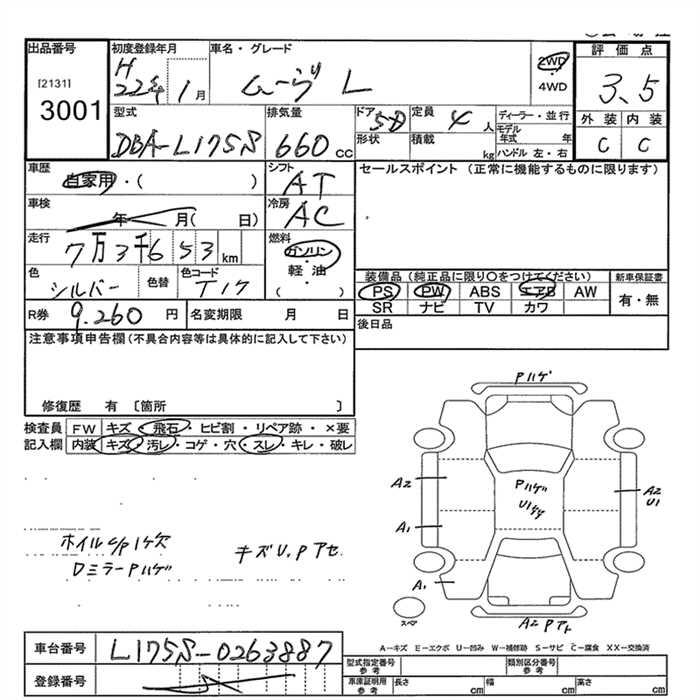 出品番号 初度登録年月 車名・グレード 評価点
[2131] H
3001 22年 1月 ムーヴ L 2WD 3.5
4WD
型式 排気量 ドア 定員 ディーラー・並行 外装 内装
DBA-L175S 660cc 5D 4人 モデル年式 年 C C
形状 積載 kg ハンドル 左・右
車歴 シフト セールスポイント (正常に機能するものに限ります)
自家用・( ) AT
車検 冷房
年 月( 日) AC
走行 燃料
7万3千653km ガソリン
色 色替 色コード 軽油
シルバー T17 ( )
装備品 (純正品に限り○をつけてください) 新車保証書
PS PW ABS エアB AW 有・無
SR ナビ TV カワ
R券 9.260 円 名変期限 月 日 後日品
注意事項申告欄 (不具合内容等は具体的に記入して下さい)
修復歴 有 〔箇所 〕
検査員 FW キズ・飛石・ヒビ割・リペア跡・×要
記入欄 内装 キズ・汚レ・コゲ・穴・スレ・キレ・破レ
Pハゲ
A2 Pハゲ A2
U1
A1
A1
スペア A2 Pアト
ホイルc/p1ケ欠 キズU.Pアセ
DミラーPハゲ
A-キズ E-エクボ U-凹み W-補修跡 S-サビ C-腐食 XX-交換済
車台番号 L175S-0263887
登録番号
型式指定番号 参考 類別区分番号 参考
車庫証明用 参考 長さ cm 幅 cm 高さ cm